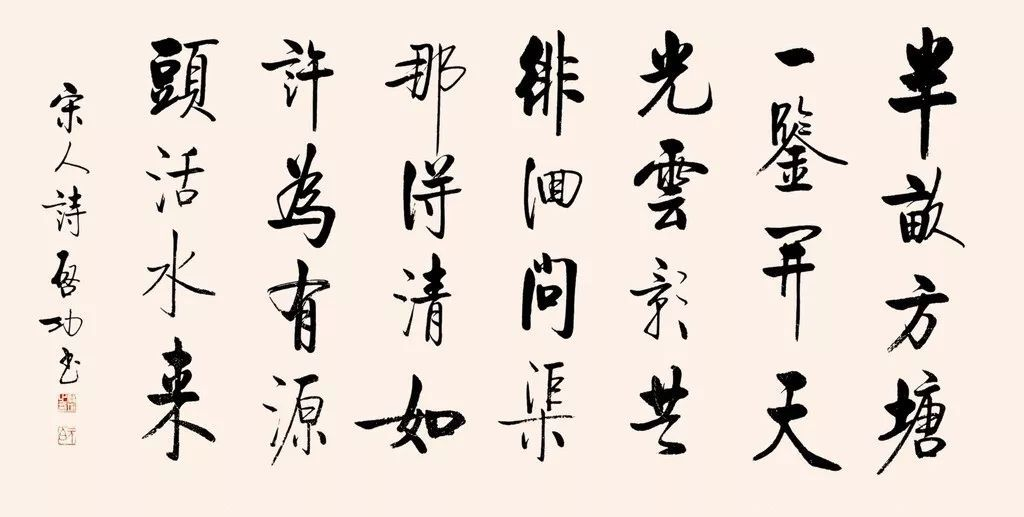 半畝方塘
一鑒開天
光雲影共
徘徊問渠
那得清如
許為有源
頭活水来
宋人詩啓功书